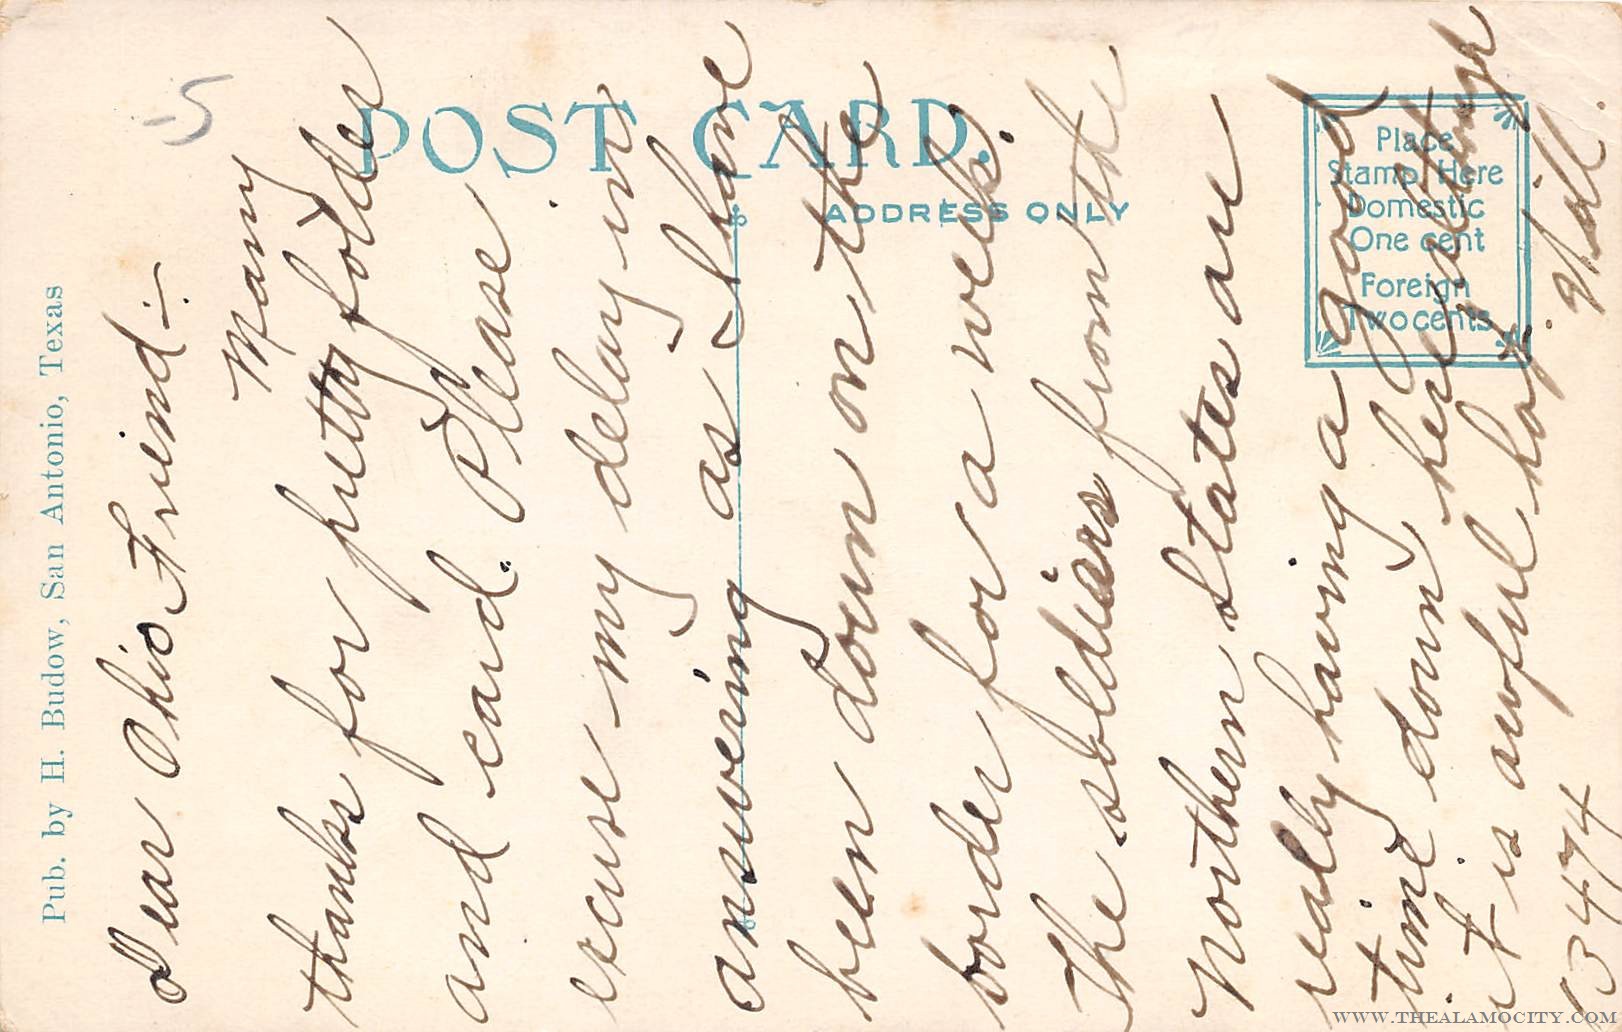 POST CARD.
ADDRESS ONLY
Place
Stamp Here
Domestic
One cent
Foreign
Two cents
Pub. by H. Budow, San Antonio, Texas
-5
Dear Ohio Friend:-
Many
thanks for pretty folder
and card. Please
excuse my delay in
answering as I have
been down on the
border for a week.
The soldiers from the
Northern States are
really having a good
time down here
it is awful hot.
B3474
WWW.THEALAMOCITY.COM